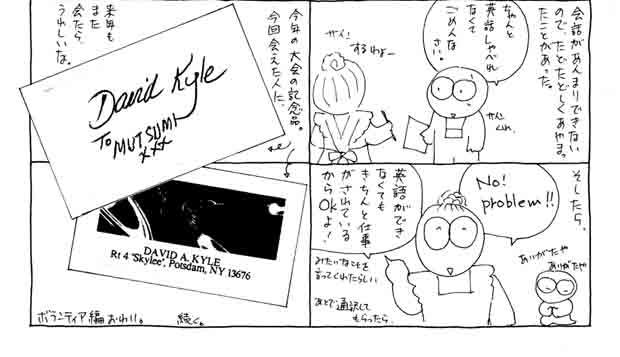 会話があんまりできない
ので、たどたどしくあやまっ
たことがあった。
ちゃんと
英語しゃべれ
なくて
ごめんな
さい。
サイン
くれ。
サイン
するわよー
そしたら、
No!
problem!!
英語ができ
なくても
きちんと仕事
がされている
からOKよ!
みたいなことを
言ってくれたらしい
あとで通訳して
もらったら、
ありがたや
ありがたや
今年の大会の記念品。
今回会えた人に、
来年も
また
会たら、
うれしいな。
David Kyle
To MUTSUMI
xxx
DAVID A. KYLE
Rt 4 "Skylee", Potsdam, NY 13676
ボランティア編おわり。
続く。